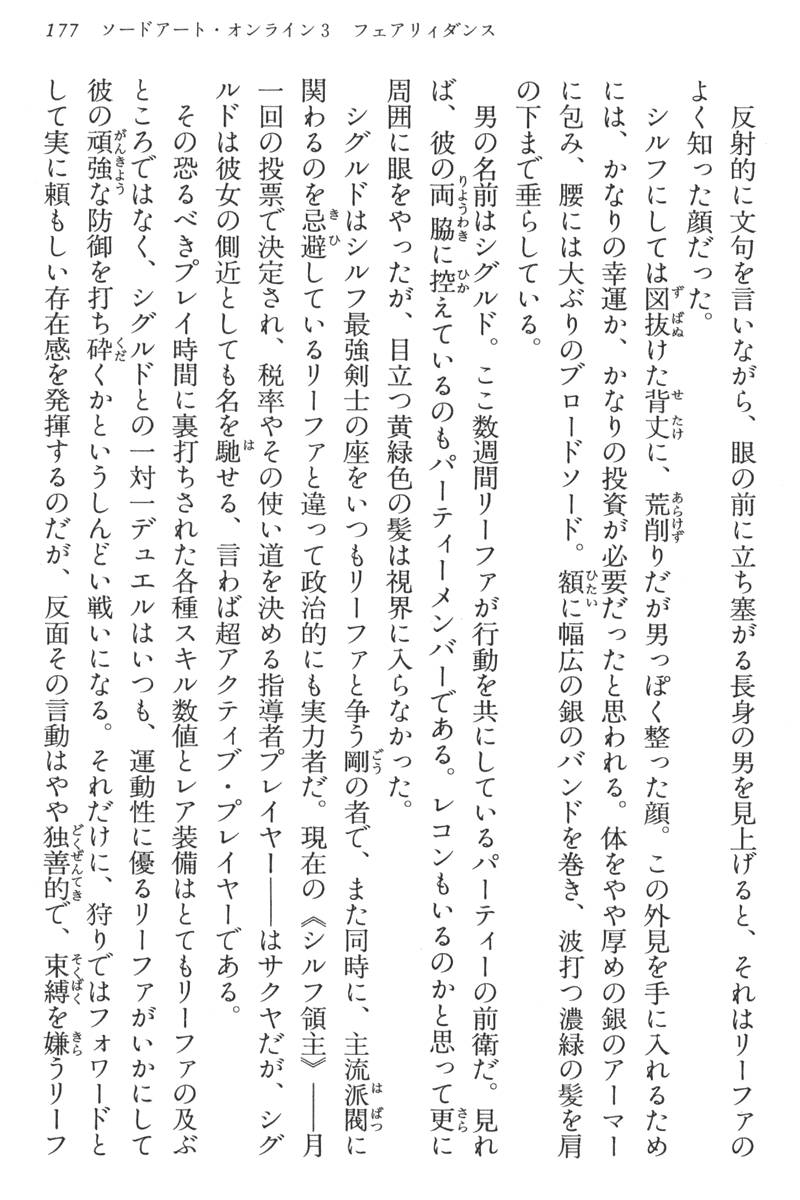 177 ソードアート・オンライン3 フェアリィダンス
反射的に文句を言いながら、眼の前に立ち塞がる長身の男を見上げると、それはリーファの
よく知った顔だった。
シルフにしては図抜けた背丈に、荒削りだが男っぽく整った顔。この外見を手に入れるため
には、かなりの幸運か、かなりの投資が必要だったと思われる。体をやや厚めの銀のアーマー
に包み、腰には大ぶりのブロードソード。額に幅広の銀のバンドを巻き、波打つ濃緑の髪を肩
の下まで垂らしている。
男の名前はシグルド。ここ数週間リーファが行動を共にしているパーティーの前衛だ。見れ
ば、彼の両脇に控えているのもパーティーメンバーである。レコンもいるのかと思って更に
周囲に眼をやったが、目立つ黄緑色の髪は視界に入らなかった。
シグルドはシルフ最強剣士の座をいつもリーファと争う剛の者で、また同時に、主流派閥に
関わるのを忌避しているリーファと違って政治的にも実力者だ。現在の《シルフ領主》――月
一回の投票で決定され、税率やその使い道を決める指導者プレイヤー――はサクヤだが、シグ
ルドは彼女の側近としても名を馳せる、言わば超アクティブ・プレイヤーである。
その恐るべきプレイ時間に裏打ちされた各種スキル数値とレア装備はとてもリーファの及ぶ
ところではなく、シグルドとの一対一デュエルはいつも、運動性に優るリーファがいかにして
彼の頑強な防御を打ち砕くかというしんどい戦いになる。それだけに、狩りではフォワードと
して実に頼もしい存在感を発揮するのだが、反面その言動はやや独善的で、束縛を嫌うリーフ